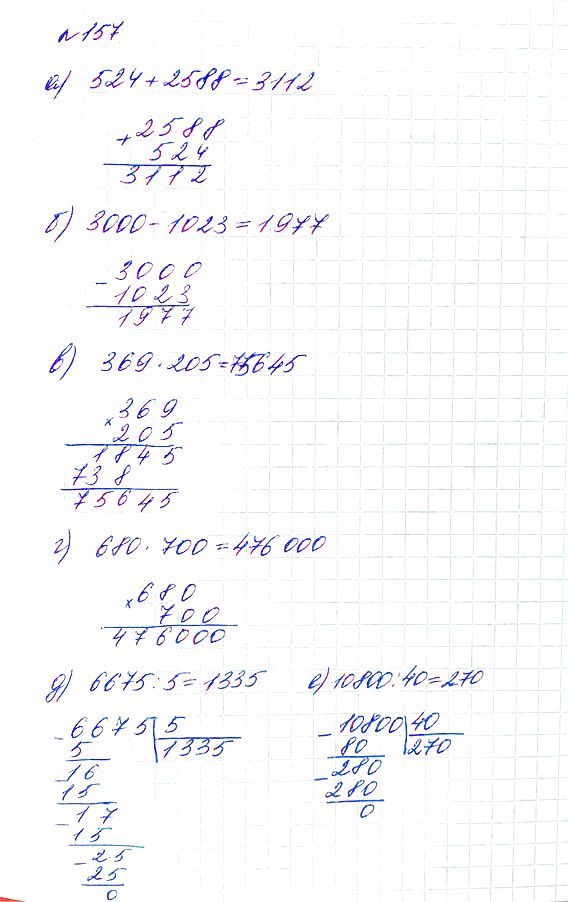 №157
а) 524+2588=3112
+2588
524
3112
б) 3000-1023=1977
-3000
1023
1977
в) 369·205=75645
×369
205
1845
738
75645
г) 680·700=476000
×680
700
476000
д) 6675:5=1335
-6675 5
5 1335
-16
15
-17
15
-25
25
0
е) 10800:40=270
-10800 40
80 270
-280
280
0